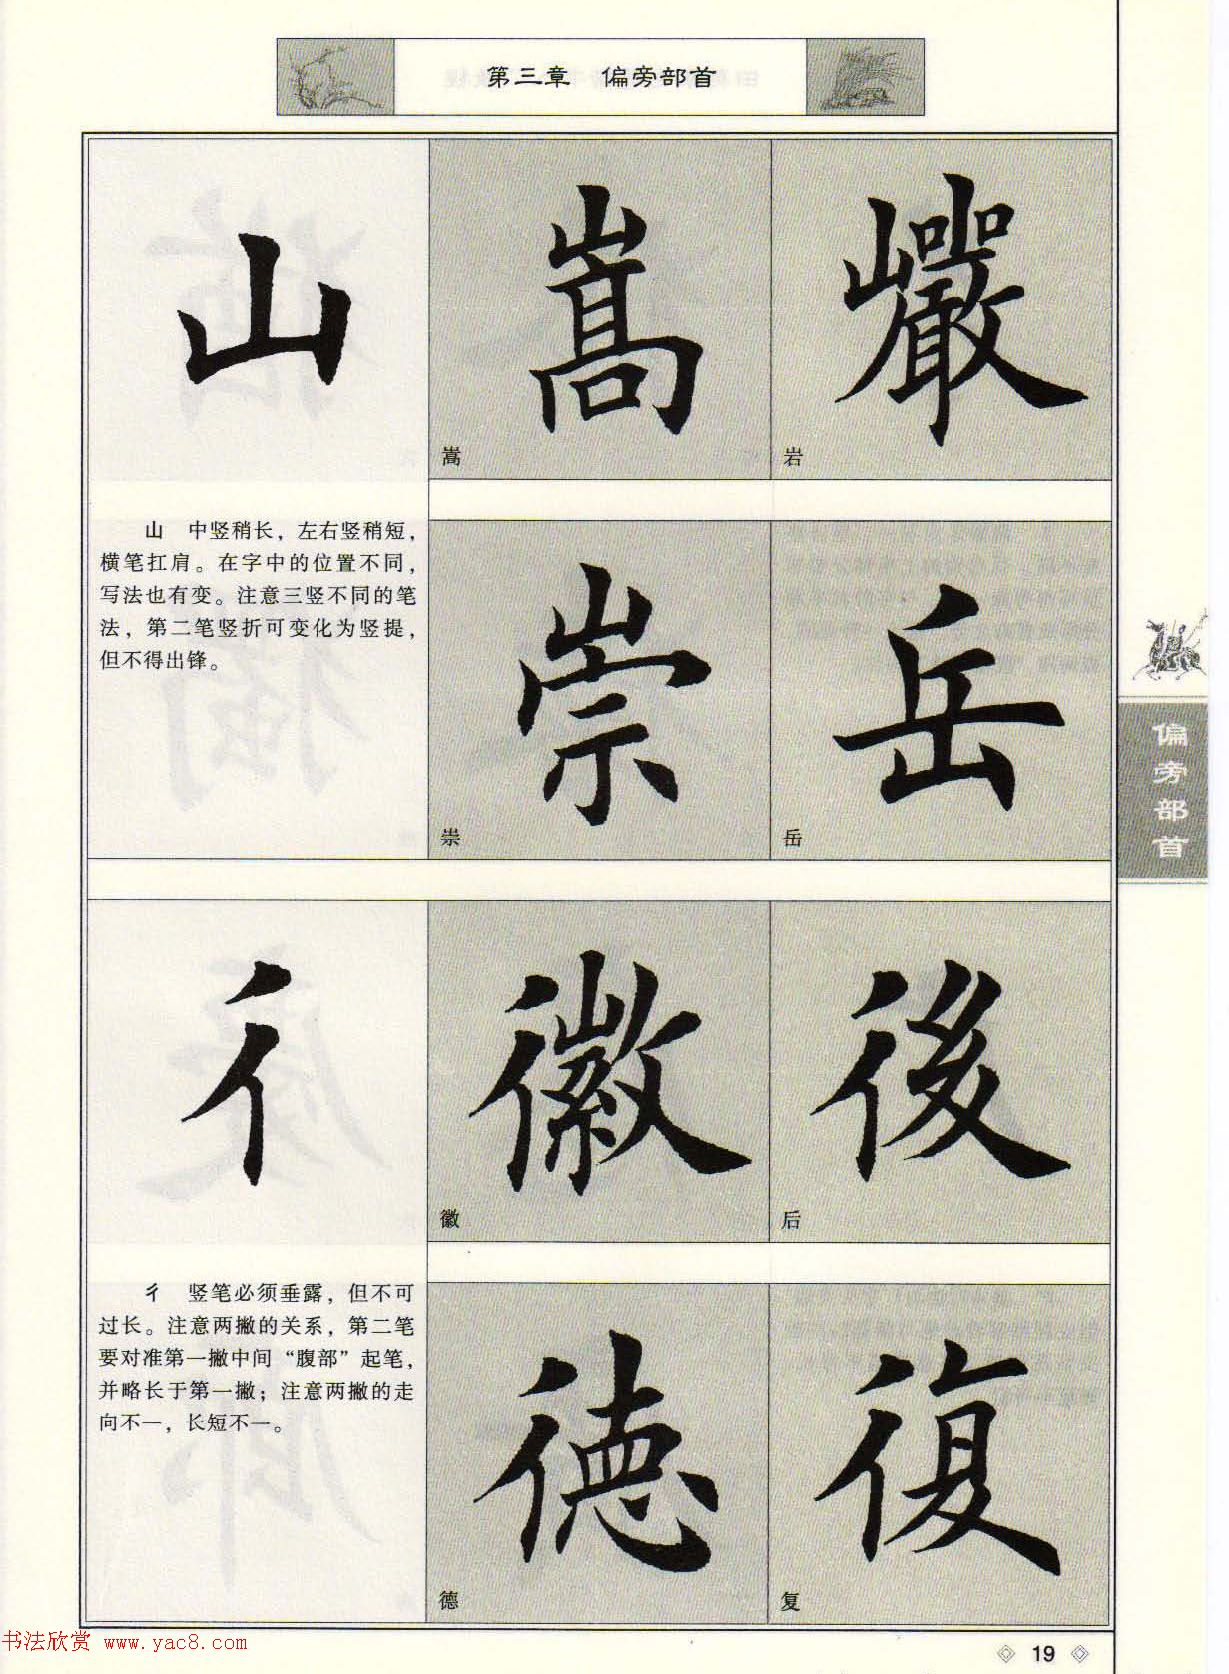 第三章 偏旁部首
山
嵩
巗
嵩
岩
山 中竖稍长，左右竖稍短，
横笔扛肩。在字中的位置不同，
写法也有变。注意三竖不同的笔
法，第二笔竖折可变化为竖提，
但不得出锋。
崇
岳
崇
岳
彳
徽
後
徽
后
彳 竖笔必须垂露，但不可
过长。注意两撇的关系，第二笔
要对准第一撇中间“腹部”起笔，
并略长于第一撇；注意两撇的走
向不一，长短不一。
德
復
德
复
偏旁部首
19
书法欣赏 www.yac8.com